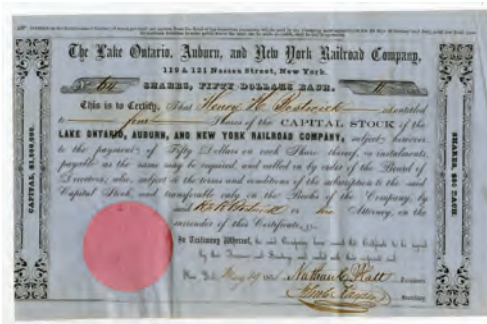 The Lake Ontario, Auburn, and New York Railroad Company,
119 & 121 Nassau Street, New York.
No 60
SHARES, FIFTY DOLLARS EACH.
This is to Certify, That Henry H. Bostwick is entitled
to four Shares of the CAPITAL STOCK of the
LAKE ONTARIO, AUBURN, AND NEW YORK RAILROAD COMPANY, subject however
to the payment of Fifty Dollars on each Share thereof, in instalments,
payable as the same may be required, and called in by order of the Board of
Directors; also, subject to the terms and conditions of the subscription to the said
Capital Stock, and transferable only on the Books of the Company, by
and or Attorney, on the
surrender of this Certificate.
In Testimony Whereof, the said Company have caused this Certificate to be signed
by their President and Secretary, and sealed with their corporate seal
New York May 19
President
Secretary
CAPITAL, $1,500,000.
SHARES $50 EACH